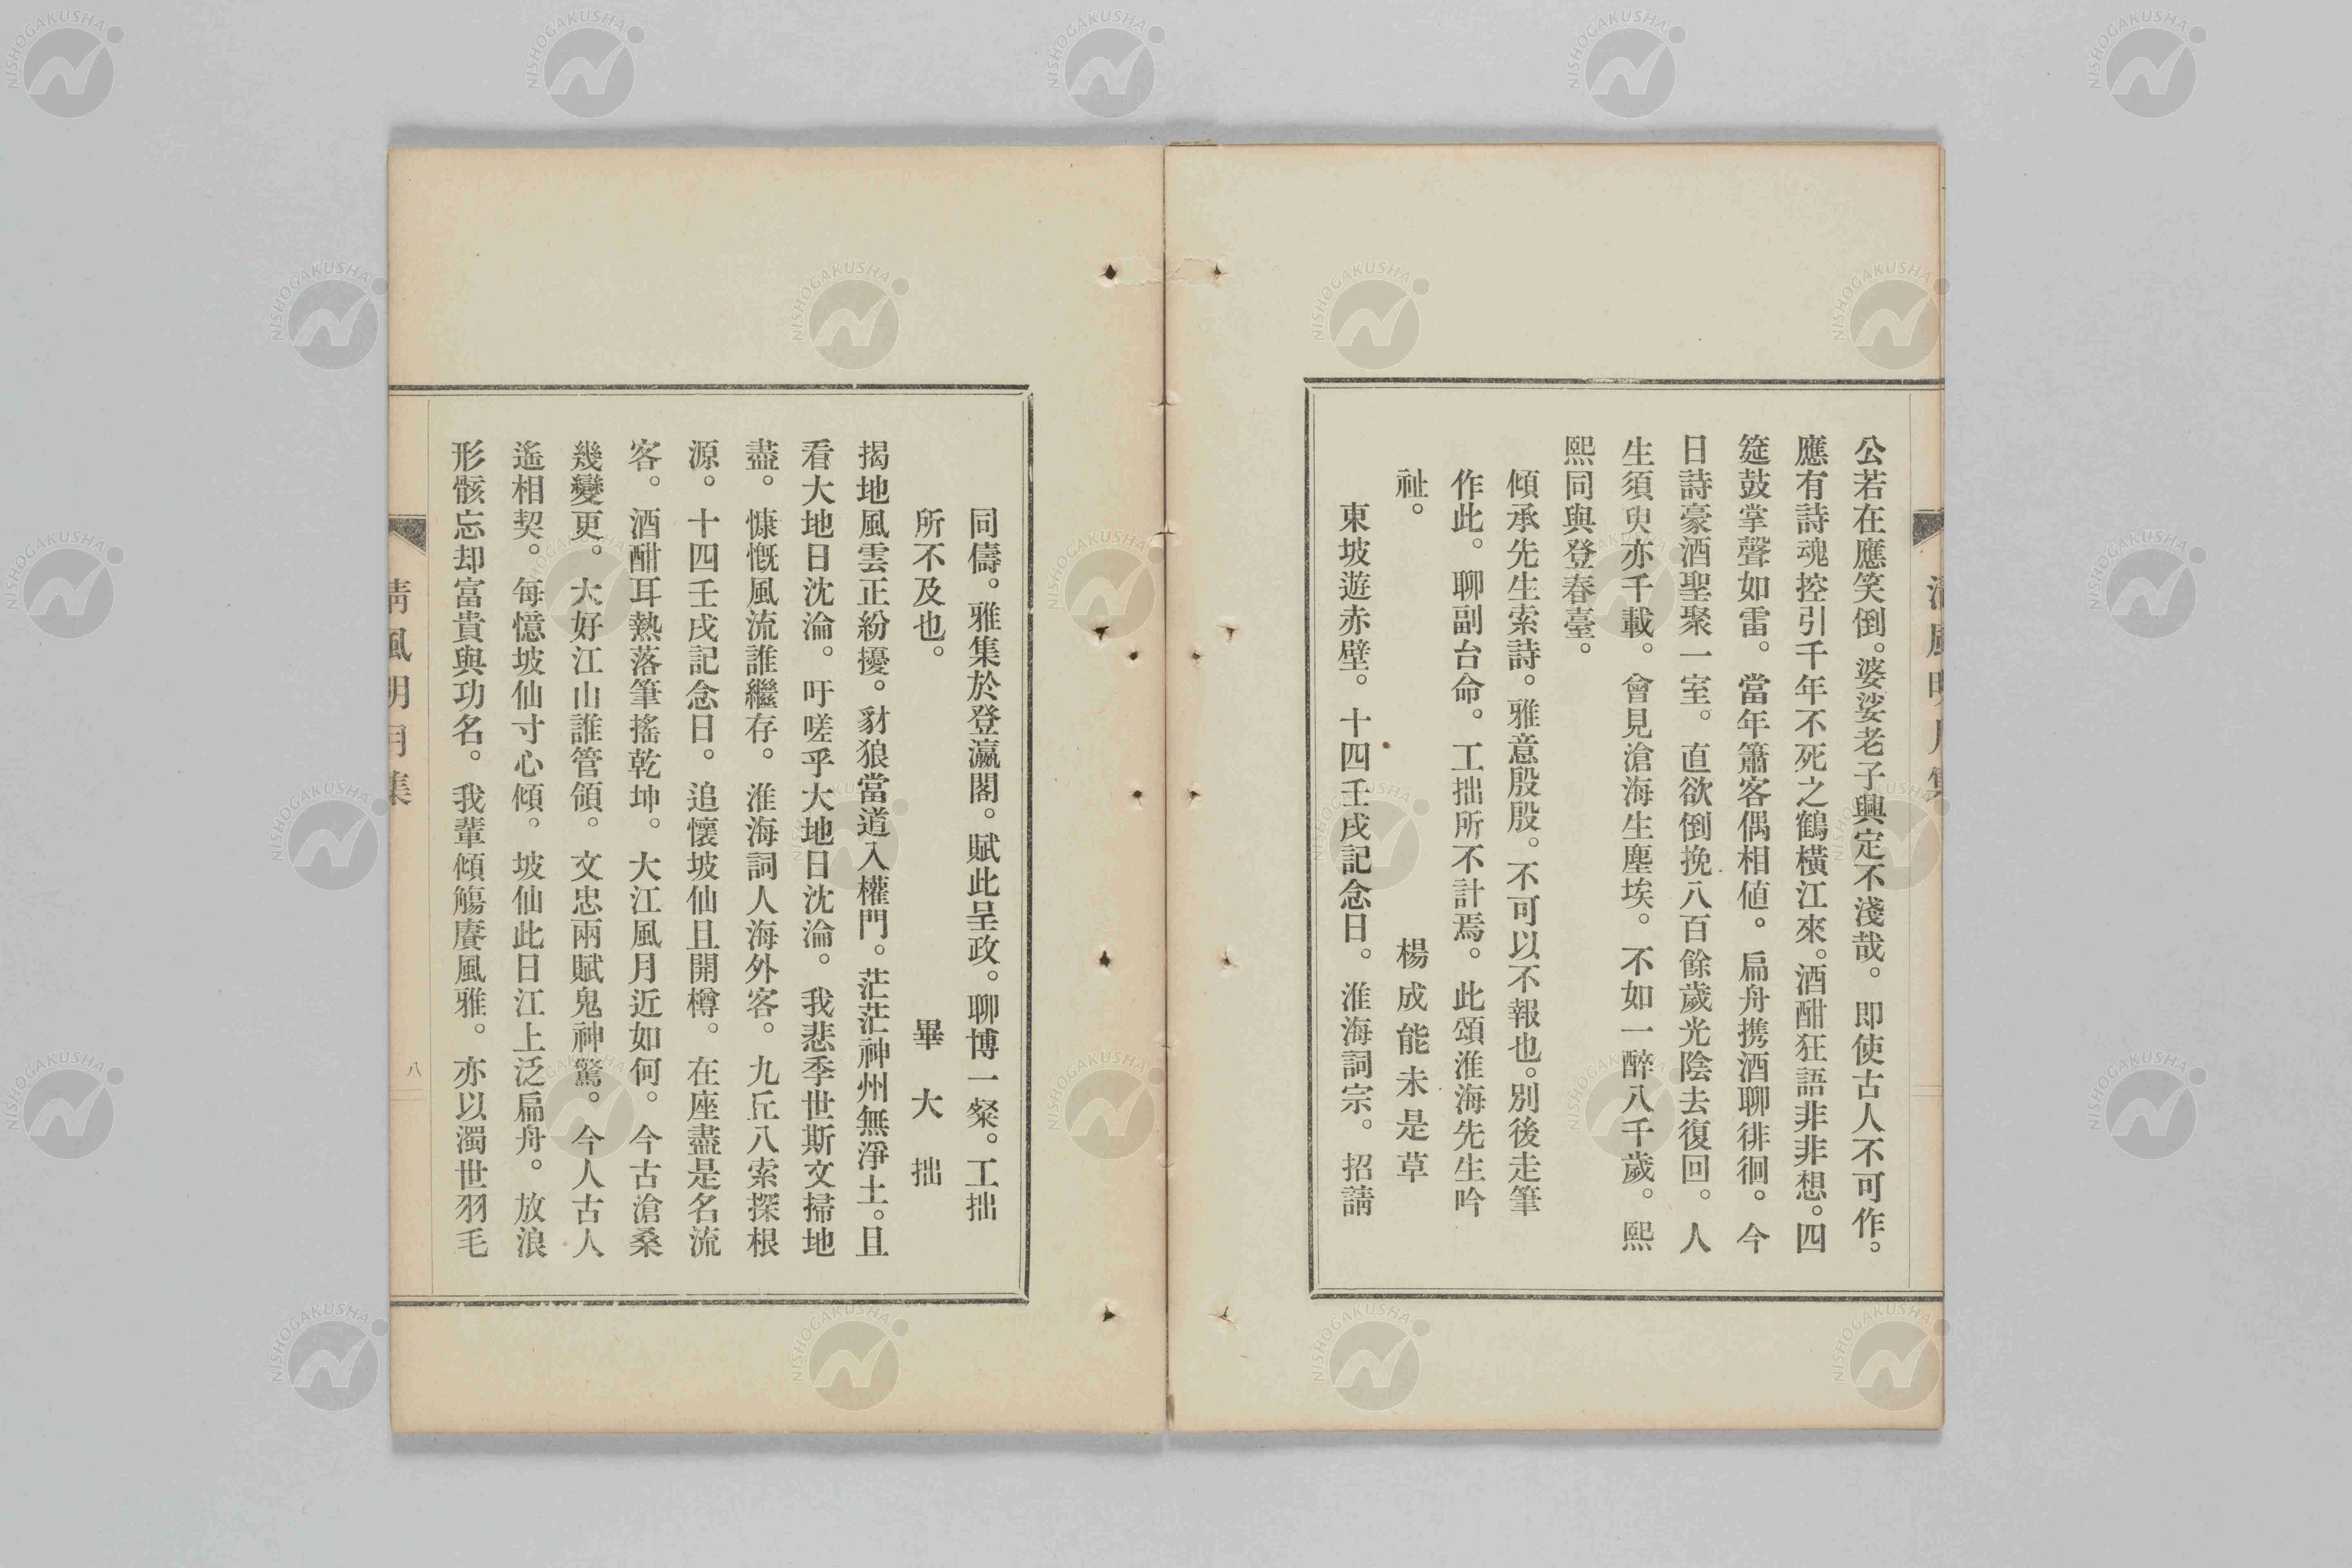 公若在應笑倒。婆娑老子興定不淺哉。即使古人不可作。
應有詩魂控引千年不死之鶴橫江來。酒酣狂語非非想。四
筵鼓掌聲如雷。當年簫客偶相値。扁舟携酒聊徘徊。今
日詩豪酒聖聚一室。直欲倒挽八百餘歲光陰去復回。人
生須臾亦千載。會見滄海生塵埃。不如一醉八千歲。熙
熙同與登春臺。
傾承先生索詩。雅意殷殷。不可以不報也。別後走筆
作此。聊副台命。工拙所不計焉。此頌淮海先生吟
祉。
楊成能未是草
東坡遊赤壁。十四壬戌記念日。淮海詞宗。招請
清風明月集
同儔。雅集於登瀛閣。賦此呈政。聊博一粲。工拙
所不及也。
畢大拙
揭地風雲正紛擾。豺狼當道入權門。茫茫神州無淨土。且
看大地日沈淪。吁嗟乎大地日沈淪。我悲季世斯文掃地
盡。慷慨風流誰繼存。淮海詞人海外客。九丘八索探根
源。十四壬戌記念日。追懷坡仙且開樽。在座盡是名流
客。酒酣耳熱落筆搖乾坤。大江風月近如何。今古滄桑
幾變更。大好江山誰管領。文忠兩賦鬼神驚。今人古人
遙相契。每憶坡仙寸心傾。坡仙此日江上泛扁舟。放浪
形骸忘却富貴與功名。我輩傾觴賡風雅。亦以濁世羽毛
清風明月集
八
NISHOGAKUSHA